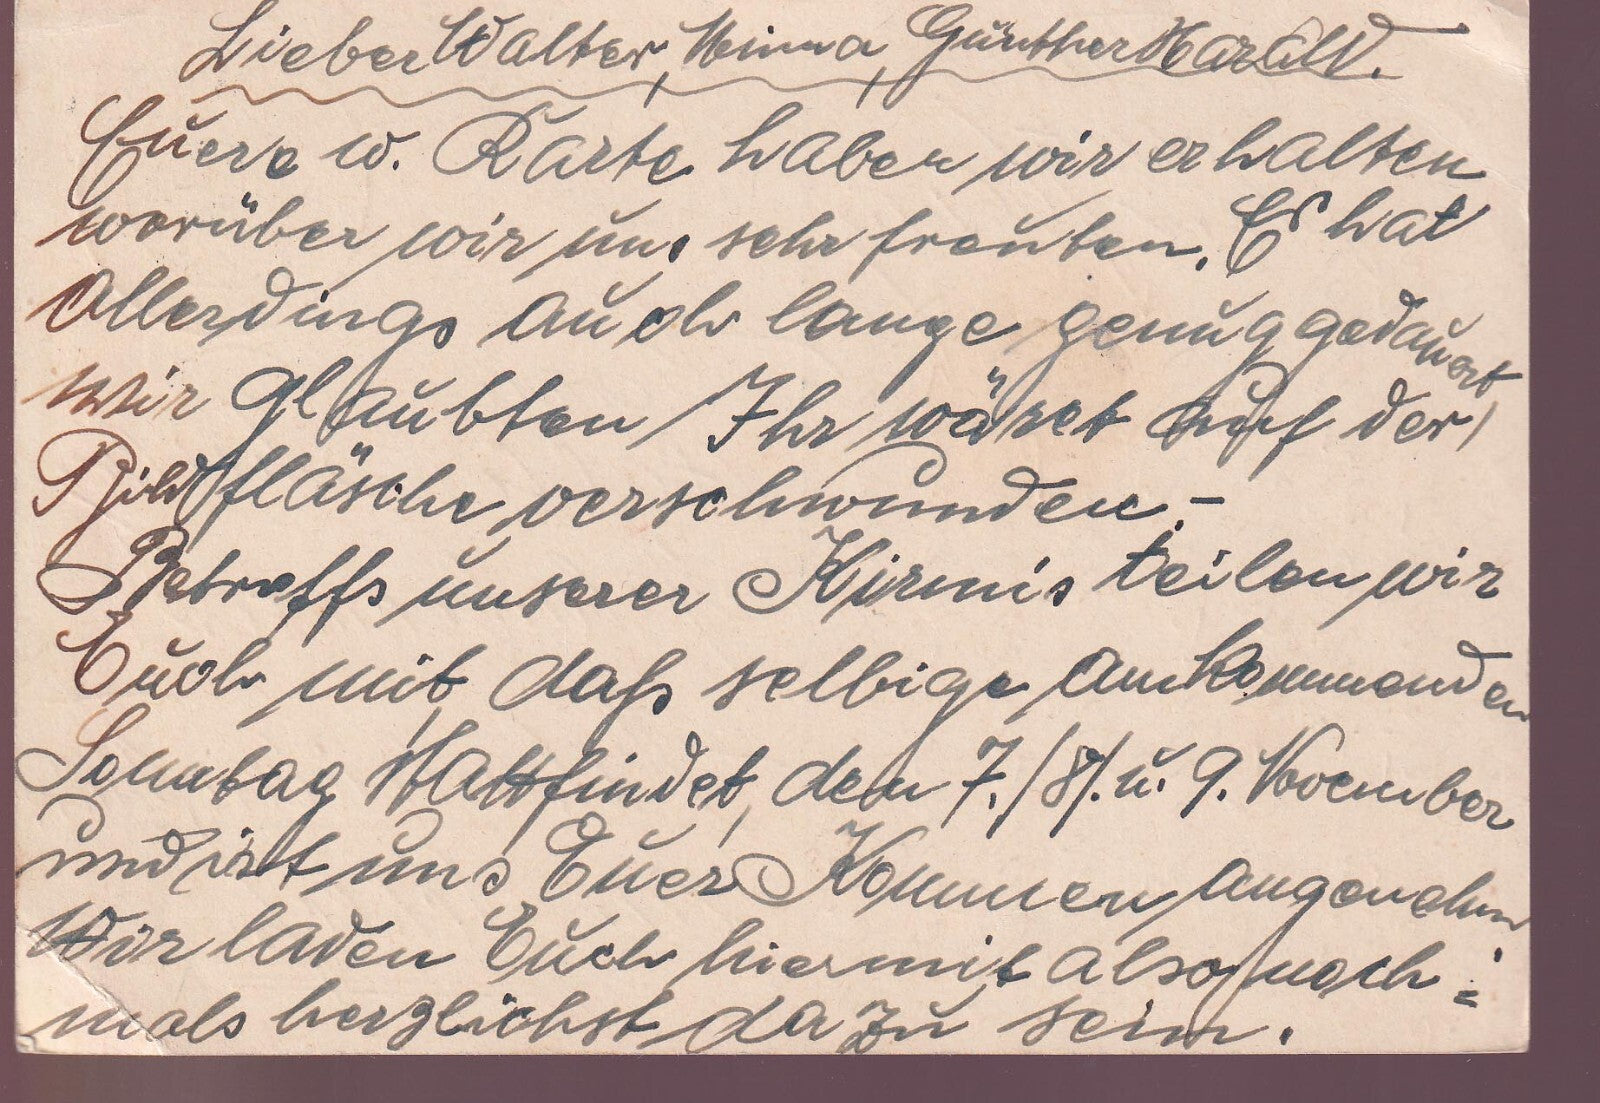 Lieber Walter, Minna, Günther Harald.
Euere w. Karte haben wir erhalten
worüber wir uns sehr freuten. Es hat
allerdings auch lange genug gedauert
wir glaubten, Ihr wäret auf der
Bildfläsche verschwunden. –
Betreffs unserer Kirmis teilen wir
Euch mit, daß selbige am kommenden
Sonntag stattfindet, den 7./8/. u. 9. November
und ist uns Euer Kommen angenehm
Wir laden Euch hiermit also noch=
mals herzlichst dazu sein.